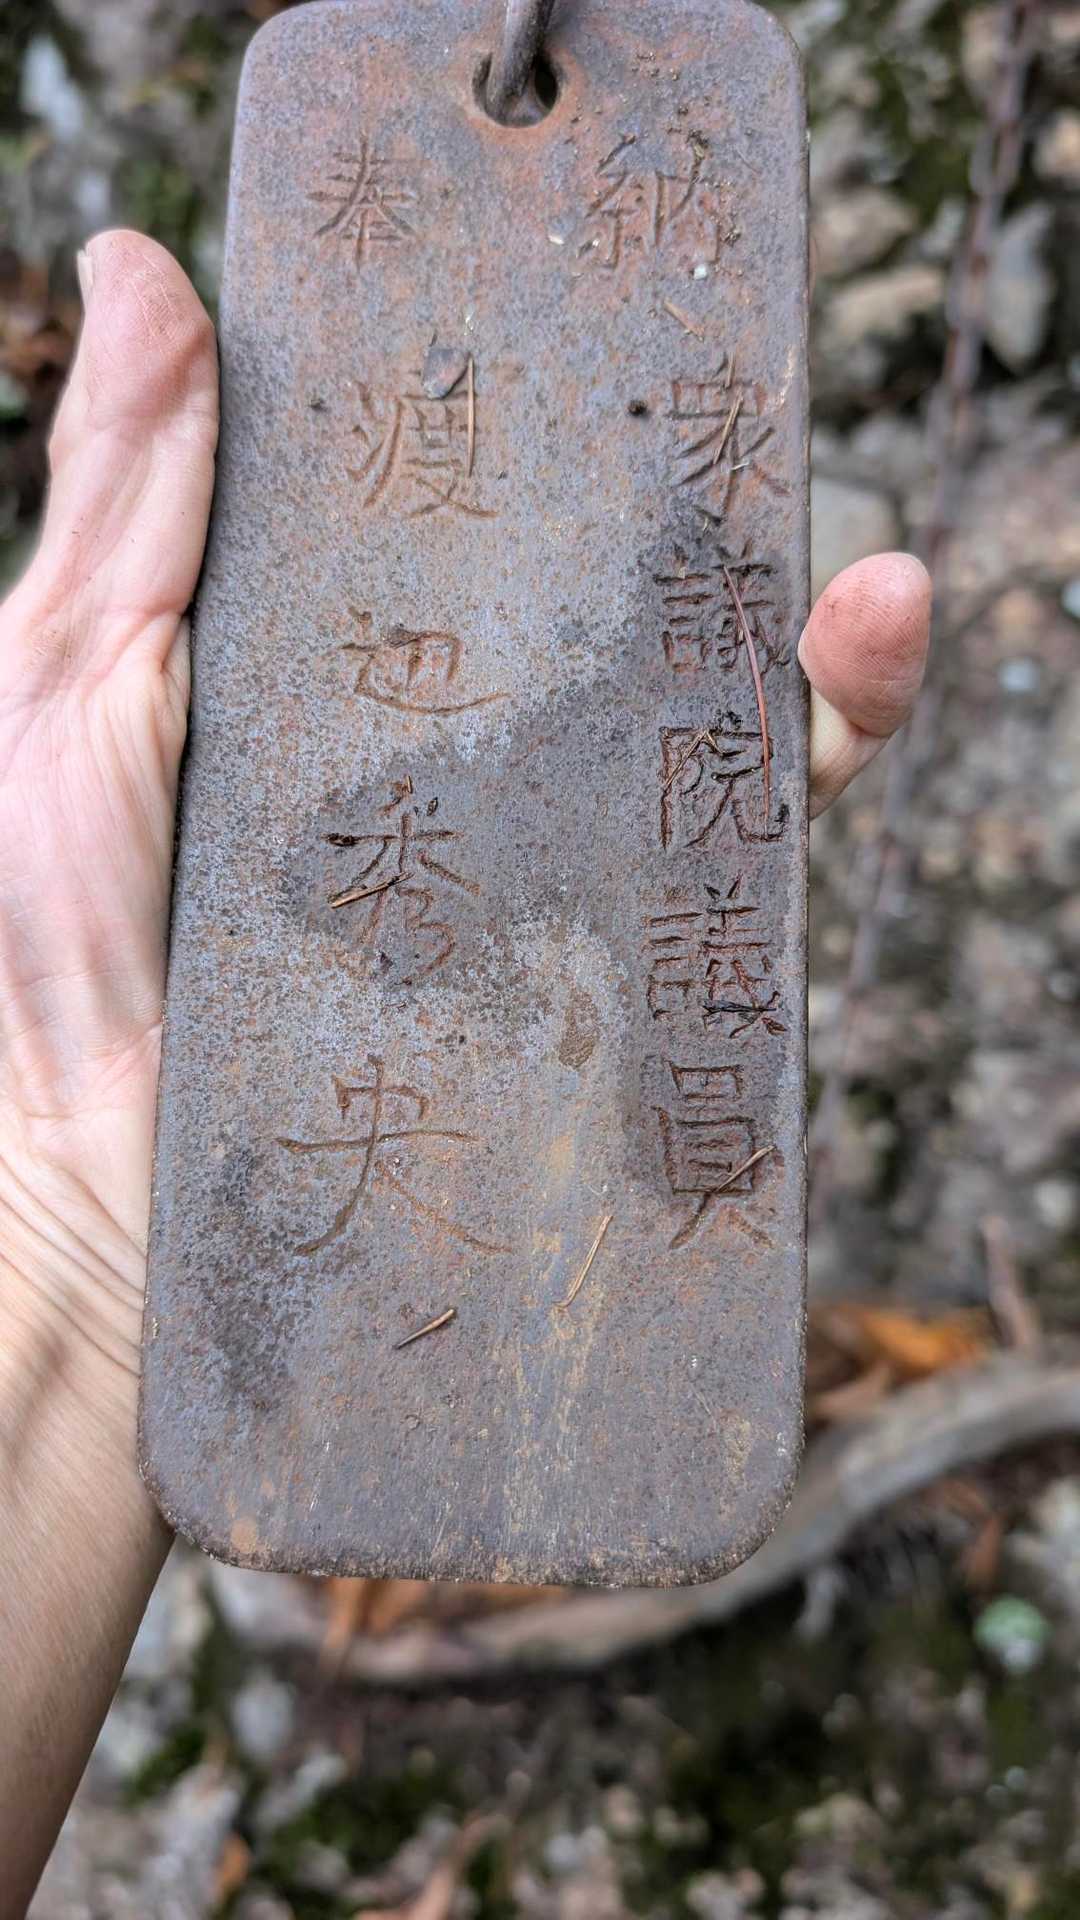 奉納
衆議院議員
渡辺秀央